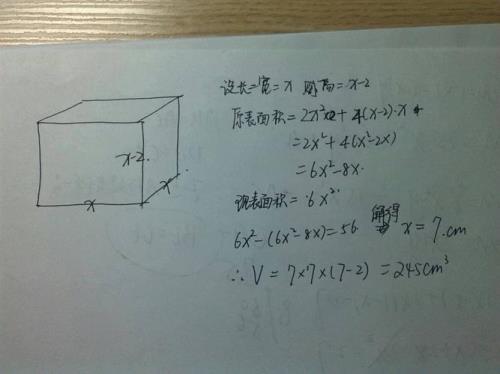 设长=宽=x 则高=x-2
原表面积=2x²+4(x-2)·x
=2x²+4(x²-2x)
=6x²-8x.
现表面积=6x²
6x²-(6x²-8x)=56 解得 x=7.cm
∴V=7×7×(7-2)=245cm³
x-2.
x
x